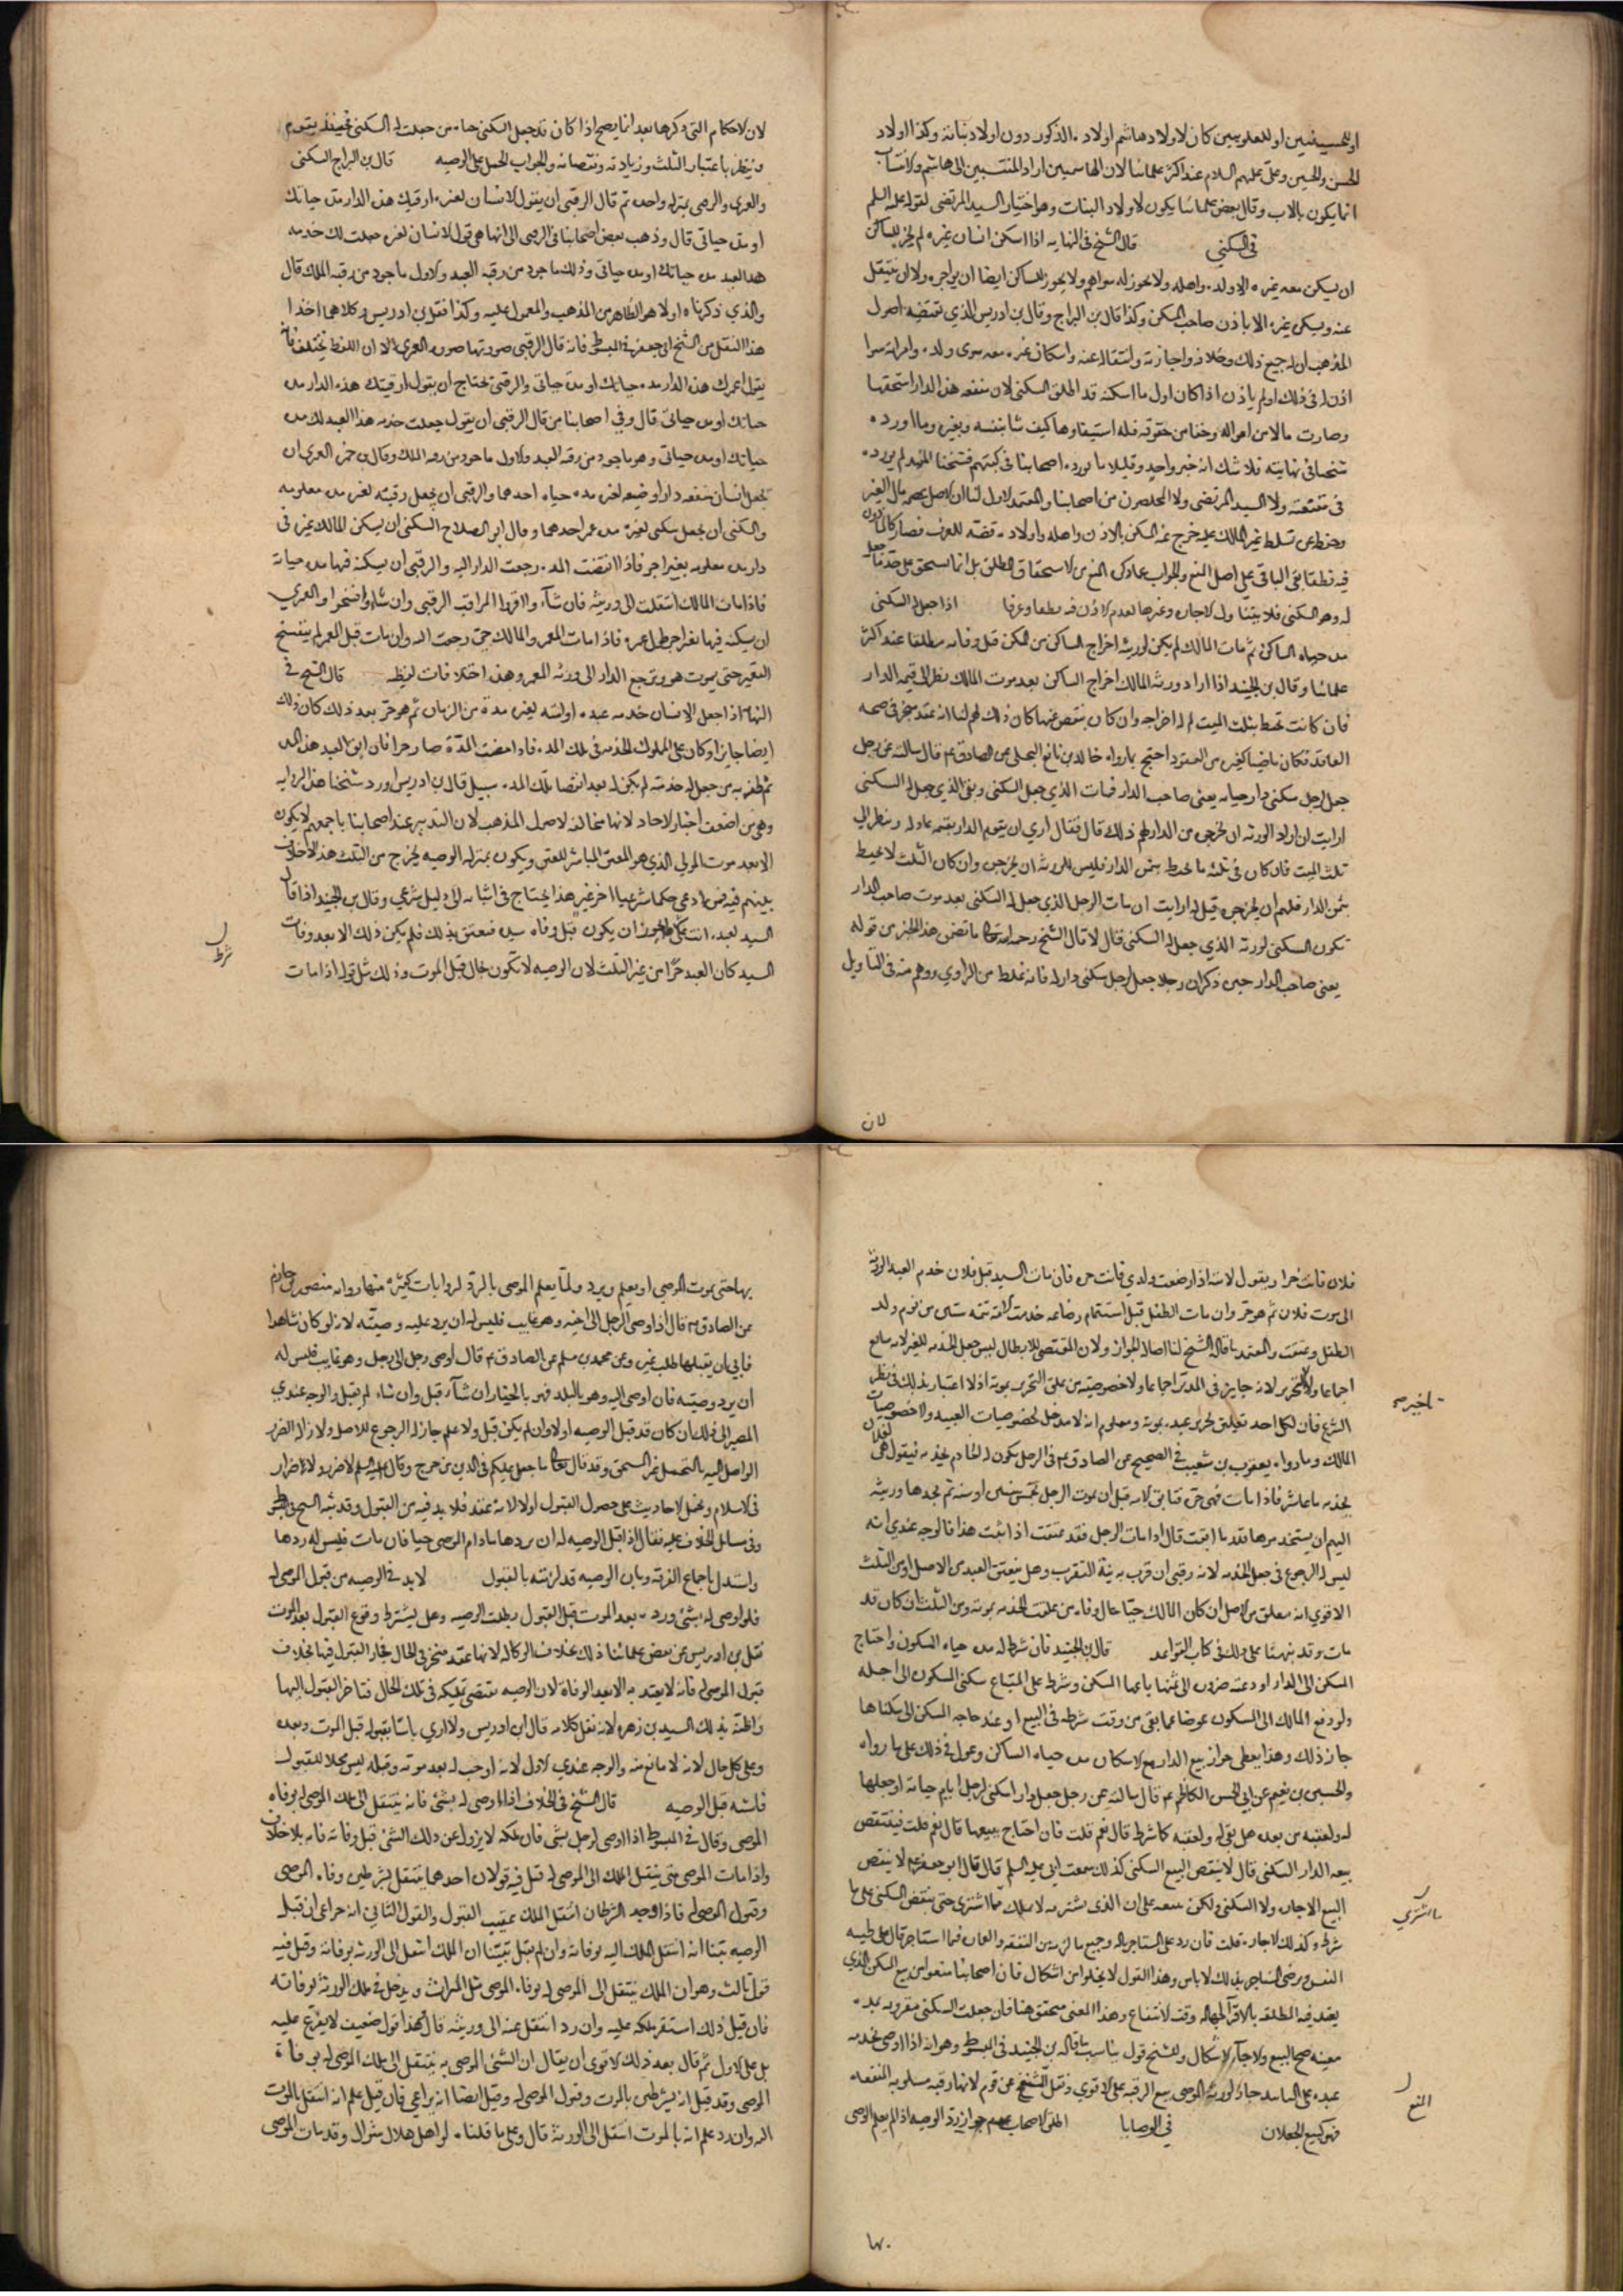 او للحسينيين او للعلويين كان لاولاد هاشم اولاده الذكور دون اولاد بناته وكذا اولاد
الحسن والحسين وعلى عليهم السلام عند اكثر علمائنا لان الهاشميين اراد المنتسبين الى هاشم والانتساب
انما يكون بالاب وقال بعض علمائنا يكون لاولاد البنات وهو اختيار السيد المرتضى لقوله عليه السلم
في السكنى قال الشيخ فى النهايه اذا اسكن انسان غيره لم يجز للساكن
ان يسكن معه غيره الا ولده واهله ولا يجوز له سواهم ولا يجوز للساكن ايضا ان يواجره ولا ان ينتقل
عنه ويسكن غيره الا باذن صاحب المسكن وكذا قال بن البراج وقال بن ادريس الذي تقتضيه اصول
المذهب ان له جميع ذلك وخلافه واجازته وانتقاله عنه واسكان غيره معه سوى ولده وامراته سوا
اذن له فى ذلك او لم ياذن اذا كان اول ما اسكنه قد اطلق السكنى لان منفعه هذه الدار استحقها
وصارت مالا من امواله وحقا من حقوقه فله استيفاوها كيف شا بنفسه وبغيره وما اورده
شيخنا فى نهايته فلا شك انه خبر واحد وقليلا ما يورده اصحابنا فى كتبهم فشيخنا المفيد لم يورده
فى مقنعته ولا السيد المرتضى ولا المحصلون من اصحابنا والمعتمد الاول لنا ان الاصل عصمه مال الغير
وحفظه عن تسلط غير المالك عليه خرج عنه السكن بالاذن واهله واولاده قضيه للعرف فصار كالماذون
فيه نطقا بقى الباقي على اصل المنع والجواب عما ذكره المنع من الاستحقاق المطلق بل انما يستحق على حد ما جعل
له وهو السكنى فلا يتناول الاجاره وغيرها لعدم الاذن فيه نطقا وعرفا اذا جعل له السكنى
مده حياه الساكن ثم مات المالك لم يكن لورثته اخراج الساكن من المسكن قبل وفاته مطلقا عند اكثر
علمائنا وقال بن الجنيد اذا اراد ورثه المالك اخراج الساكن بعد موت المالك نظر الى قيمه الدار
فان كانت تحيط بثلث الميت لم له اخراجه وان كان ينقص عنها كان ذلك لهم لنا انه عقد منجز فى صحه
العاقد فكان ماضيا كغيره من العقود احتج بما رواه خالد بن نافع البجلي عن الصادق ع قال سالته عن رجل
جعل لرجل سكنى دار حياته يعنى صاحب الدار فمات الذي جعل السكنى وبقى الذي جعل له السكنى
ارايت ان اراد الورثه ان يخرجوه من الدار لهم ذلك قال فقال ارى ان يقوم الدار بقيمه عادله وينظر الى
ثلث الميت فان كان فى ثلثه ما يحيط بثمن الدار فليس للورثه ان يخرجوه وان كان الثلث لا يحيط
بثمن الدار فلهم ان يخرجوه قيل له ارايت ان مات الرجل الذي جعل له السكنى بعد موت صاحب الدار
تكون السكنى لورثة الذي جعل له السكنى قال لا قال الشيخ رحمه الله تعالى ما تضمن هذا الخبر من قوله
يعنى صاحب الدار حين ذكر ان رجلا جعل لرجل سكنى دار له فانه غلط من الراوي ووهم منه فى التاويل
لان
لان الاحكام التى ذكرها بعد انما يصح اذا كان قد جعل السكنى حياه من جعلت له السكنى فحينئذ يقوم
وينظر باعتبار الثلث وزيادته ونقصانه والجواب الحمل على الوصيه قال بن البراج السكنى
والعمرى والرقبى بمنزله واحده ثم قال الرقبى ان يقول الانسان لغيره ارقبتك هذه الدار مده حياتك
او مده حياتى قال وذهب بعض اصحابنا فى الرقبى الى انها هى قول الانسان لغيره جعلت لك خدمه
هذا العبد مده حياتك او مده حياتى وذلك ماخوذ من رقبه العبد والاول ماخوذ من رقبه الملك قال
والذي ذكرناه اولا هو الظاهر من المذهب والمعمول عليه وكذا نقل بن ادريس وكلاهما اخذا
هذا النقل من الشيخ ابى جعفر فى المبسوط فانه قال الرقبى صورتها صوره العمرى الا ان اللفظ يختلف فانه
يقول اعمرتك هذه الدار مده حياتك او مده حياتى والرقبى يحتاج ان يقول ارقبتك هذه الدار مده
حياتك او مده حياتى قال وفي اصحابنا من قال الرقبى ان يقول جعلت خدمه هذا العبد لك مده
حياتك او مده حياتى وهو ماخوذ من رقبه العبد والاول ماخوذ من رقبه الملك وقال بن حمزه العمرى ان
يجعل انسان منفعه دار او ضيعه لغيره مده حياه احدهما والرقبى ان يجعل رقبته لغيره مده معلومه
والسكنى ان يجعل سكنى لغيره مده عمر احدهما وقال ابو الصلاح السكنى ان يسكن المالك غيره فى
دار مده معلومه بغير اجر فاذا انقضت المده رجعت الدار اليه والرقبى ان يسكنه فيها مده حياته
فاذا مات المالك انتقلت الى ورثته فان شآء وا اقروا المراقب الرقبى وان شاءوا فسخوا والعمرى
ان يسكنه فيها بغير اجر طول عمره فاذا مات المعمر والمالك حى رجعت اليه وان مات قبل المعمر لم ينفسخ
التعمير حتى يموت هو وترجع الدار الى ورثه المعمر وهذه اختلافات لفظيه قال الشيخ في
النهايه اذا جعل الانسان خدمه عبده او امته لغيره مدة من الزمان ثم هو حر بعد ذلك كان ذلك
ايضا جايزا وكان على المملوك الخدمه فى تلك المده فاذا مضت المدة صار حرا فان ابق العبد هذه المده
ثم ظفر به من جعل له خدمته لم يكن له بعد انقضا تلك المده سبيل قال بن ادريس اورد شيخنا هذه الروايه
وهى من اضعف اخبار الاحاد لانها مخالفه لاصول المذهب لان التدبير عند اصحابنا باجمعهم لا يكون
الا بعد موت المولى الذي هو المعتق المباشر للعتق ويكون بمنزله الوصيه يخرج من الثلث هذا لا خلاف
بينهم فيه فمن ادعى حكما شرعيا اخر غير هذا يحتاج فى اثباته الى دليل شرعي وقال بن الجنيد اذا قال
السيد لعبده انت ان يكون قبل وفاه فيعتق بذلك فلم يكن ذلك الا بعد وفات
السيد كان العبد حرا من غير الثلث لان الوصيه لا تكون بحال قبل الموت وذلك مثل قوله اذا مات
شرط
فلان فانت حر او يقول لامته اذا ارضعت ولدي فانت حره فان مات السيد قبل فلان خدم العبد الورثة
الى موت فلان ثم هو حر وان مات الطفل قبل استتمام رضاعه خدمت الامه تتمه سنتين من يوم ولد
الطفل وعتقت والمعتمد ما قاله الشيخ لنا اصاله الجواز ولان المقتضى للابطال ليس جعل الخدمه للغير لانه سايغ
اجماعا ولا التحرير لانه جايز في المدبر اجماعا ولا خصوصيته من علق التحرير بموته اذ لا اعتبار بذلك فى نظر
الشرع فان لكل احد تعليق تحرير عبده بموته ومعلوم انه لا مدخل لخصوصيات العبيد ولا خصوصيات
المالك وما رواه يعقوب بن شعيب فى الصحيح عن الصادق ع فى الرجل يكون له الخادم يخدمه فيقول هى لفلان
يخدمه ما عاش فاذا مات فهى حره فتابق الامه قبل ان يموت الرجل بخمس سنين او سته ثم يجدها ورثته
الهم ان يستخدموها قدر ما ابقت قال اذا مات الرجل فقد عتقت اذا ثبت هذا فالوجه عندي انه
ليس له الرجوع فى جعل الخدمه لانه رقبى ان قرن به نية التقرب وهل ينعتق العبد من الاصل او من الثلث
الاقوى انه معلق من الاصل ان كان المالك حيا حال وفاه من علقت الخدمه بموته ومن الثلث ان كان قد
مات وقد نبهنا على ذلك فى كتاب القواعد قال بن الجنيد فان شرط له مده حياه السكون واحتاج
المسكن الى الدار او دعته ضروره الى ثمنها باعها المسكن وشرط على المبتاع سكنى المسكون الى اجله
ولو دفع المالك الى المسكون عوضا عما بقى من وقت شرطه فى البيع او عند حاجه المسكن الى سكناها
جاز ذلك وهذا يعطى جواز بيع الدار مع الاسكان مده حياه الساكن وعول فى ذلك على ما رواه
والحسين بن نعيم عن ابى الحسن الكاظم ع قال سالته عن رجل جعل دار اسكنى لرجل ايام حياته او جعلها
له ولعقبه من بعده هل هى له ولعقبه كما شرط قال نعم قلت فان احتاج يبيعها قال نعم قلت فينقض
بيعه الدار السكنى قال لا ينقض البيع السكنى كذلك سمعت ابى عليه السلم قال قال ابو جعفر ع لا ينقض
البيع الاجاره ولا السكنى ولكن يبيعه على ان الذى يشتريه لا يملك ما اشترى حتى ينقضى السكنى على ما
شرط وكذلك الاجاره قلت فان رد على المستاجر ماله وجميع ما لزمه من النفقه والعماره فيما استاجر قال على طيبه
النفس ويرضى المستاجر بذلك لا باس وهذا القول لا يخلو من اشكال فان اصحابنا منعوا من بيع المسكن الذي
يعتد فيه المطلقه بالاقرآ لجهاله وقت الانتفاع وهذا المعنى متحقق هنا فان جعلت السكنى مقرونه بمده
معينه صح البيع والاجاره الاشكال وللشيخ قول يناسب ما قاله بن الجنيد فى المبسوط وهو انه اذا اوصى بخدمه
عبده على التابيد جاز لورثه الموصى بيع الرقبه على الاقوى ونقل الشيخ عن قوم لانها رقبه مسلوبه المنفعه
فهو كبيع الجعلان في الوصايا اطلق الاصحاب جواز رد الوصيه اذا لم يعلم الموصى
ما اشترى
المنع
بها
بها حتى يموت الموصي او يعلم ويرد ولما يعلم الموصى بالرد لروايات كثيره منها روايه منصور بن حازم
عن الصادق ع قال اذا اوصى الرجل الى اخيه وهو غايب فليس له ان يرد عليه وصيته لانه لو كان شاهدا
فابى ان يقبلها طلب غيره وعن محمد بن مسلم عن الصادق ع قال اوصى رجل الى رجل وهو غايب فليس له
ان يرد وصيته فان اوصى اليه وهو بالبلد فهو بالخيار ان شآء قبل وان شاء لم يقبل والوجه عندي
المصير الى ذلك ان كان قد قبل الوصيه اولا وان لم يكن قبل ولا علم جاز له الرجوع للاصل ولازاله الضرر
الواصل اليه بالتحمل غير المستحق وقد قال تعالى ما جعل عليكم فى الدين من حرج وقال عليه السلم لا ضرر ولا اضرار
فى الاسلام ويحمل الاحاديث على حصول القبول اولا لانه عقد فلا بد فيه من القبول وقد نبه الشيخ فى المبسوط
وفى مسائل الخلاف عليه فقال اذا قبل الوصيه له ان يردها مادام الموصى حيا فان مات فليس له ردها
واستدل باجماع الفرقه وبان الوصيه قد لزمته بالقبول لا بد فى الوصيه من قبول الموصى له
فلو اوصى له بشئ ورده بعد الموت قبل القبول بطلت الوصيه وهل يشترط وقوع القبول بعد الموت
نقل بن ادريس عن بعض علمائنا ذلك بخلاف الوكاله لانها عقد منجز فى الحال فجاز القبول فيها بخلاف
قبول الموصى له فانه لا يعتد به الا بعد الوفاة لان الوصيه تقتضى تمليكه فى تلك الحال فتاخر القبول اليها
واظنه بذلك السيد بن زهره لانه نقل كلامه قال ابن ادريس ولا ارى باسا بقبوله قبل الموت وبعده
وعلى كل حال لانه لا مانع منه والوجه عندي الاول لانه اوجب له بعد موته وقبله ليس محلا للقبول
فاشبه قبل الوصيه قال الشيخ فى الخلاف اذا اوصى له بشئ فانه ينتقل الى ملك الموصى له بوفاه
الموصى وقال فى المبسوط اذا اوصى لرجل بشئ فان ملكه لا يزول عن ذلك الشئ قبل وفاته فانه بلا خلاف
واذا مات الموصى متى ينتقل الملك الى الموصى له قيل فيه قولان احدهما ينتقل بشرطين وفاه الموصى
وقبول الموصى له فاذا وجد الشرطان انتقل الملك عقيب القبول والقول الثانى انه مراعى ان قبل
الوصيه تبينا انه انتقل الملك اليه بوفاته وان لم يقبل تبينا ان الملك انتقل الى الورثه بوفاته وقيل فيه
قول ثالث وهو ان الملك ينتقل الى الموصى له بوفاه الموصى مثل الميراث ويدخل فى ملك الورثه بوفاته
فان قبل ذلك استقر ملكه عليه وان رد انتقل عنه الى ورثته قال وهذا قول ضعيف لا يفرع عليه
بل على الاول ثم قال بعد ذلك الاقوى ان يقال ان الشئ الموصى به ينتقل الى ملك الموصى له بوفاة
الموصى وقد قيل انه بشرطين بالموت وقبول الموصى له وقيل ايضا انه يراعى فان قبل علم انه انتقل بالموت
اليه وان رد علم انه بالموت انتقل الى الورثة قال وعلى ما قلناه لو اهل هلال شوال وقد مات الموصى